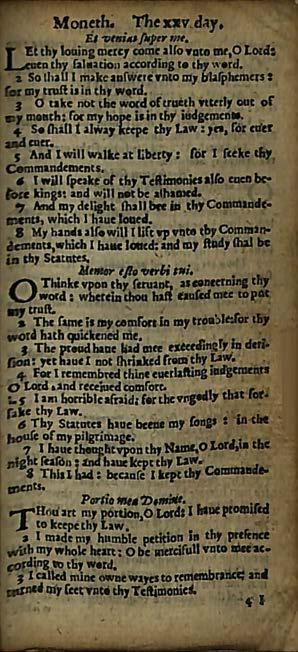 Moneth. The xxv. day.
Et veniat super me.
LEt thy louing mercy come also vnto me, O Lord:
euen thy saluation according to thy word.
2 So shall I make answere vnto my blasphemers:
for my trust is in thy word.
3 O take not the word of trueth vtterly out of
my mouth: for my hope is in thy iudgements.
4 So shall I alway keepe thy Law: yea, for euer
and euer.
5 And I will walke at liberty: for I seeke thy
Commandements.
6 I will speake of thy Testimonies also euen be-
fore kings: and will not be ashamed.
7 And my delight shall bee in thy Commande-
ments, which I haue loued.
8 My hands also will I lift vp vnto thy Comman-
dements, which I haue loued: and my study shal be
in thy Statutes.
Memor esto verbi tui.
O Thinke vpon thy seruant, as concerning thy
word: wherein thou hast caused mee to put
my trust.
2 The same is my comfort in my trouble: for thy
word hath quickened me.
3 The proud haue had mee exceedingly in deri-
sion: yet haue I not shrinked from thy Law.
4 For I remembred thine euerlasting iudgements
O Lord, and receiued comfort.
5 I am horrible afraid: for the vngodly that for-
sake thy Law.
6 Thy Statutes haue beene my songs: in the
house of my pilgrimage.
7 I haue thought vpon thy Name, O Lord, in the
night season: and haue kept thy Law.
8 This I had: because I kept thy Commande-
ments.
Portio mea Domine.
THou art my portion, O Lord: I haue promised
to keepe thy Law.
2 I made my humble petition in thy presence
with my whole heart: O be mercifull vnto mee ac-
cording to thy word.
3 I called mine owne wayes to remembrance: and
turned my feet vnto thy Testimonies.
4 I